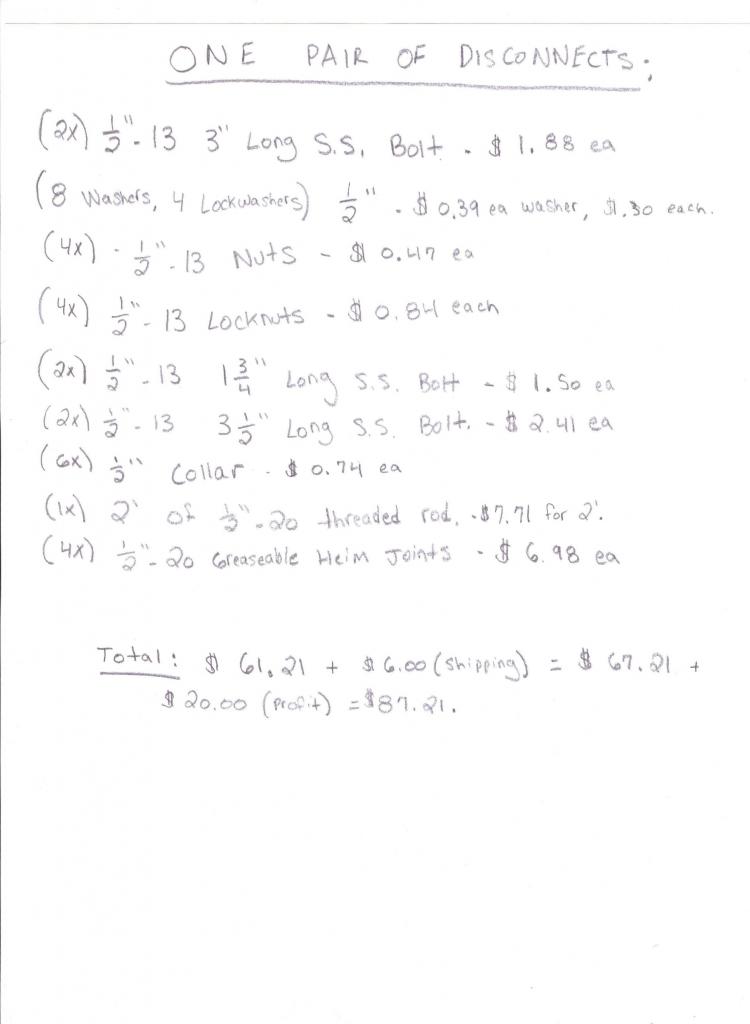 ONE PAIR OF DISCONNECTS:
(2x) 1/2"-13 3" Long S.S. Bolt - $1.88 ea
(8 Washers, 4 Lockwashers) 1/2" - $0.39 ea washer, $1.30 each.
(4x) - 1/2"-13 Nuts - $0.47 ea
(4x) 1/2"-13 Locknuts - $0.84 each
(2x) 1/2"-13 1 3/4" Long S.S. Bolt - $1.50 ea
(2x) 1/2"-13 3 1/2" Long S.S. Bolt. - $2.41 ea
(6x) 1/2" Collar - $0.74 ea
(1x) 2' of 1/2"-20 threaded rod. - $7.71 for 2'.
(4x) 1/2"-20 Greaseable Heim Joints - $6.98 ea
Total: $61.21 + $6.00 (Shipping) = $67.21 +
$20.00 (Profit) = $87.21.